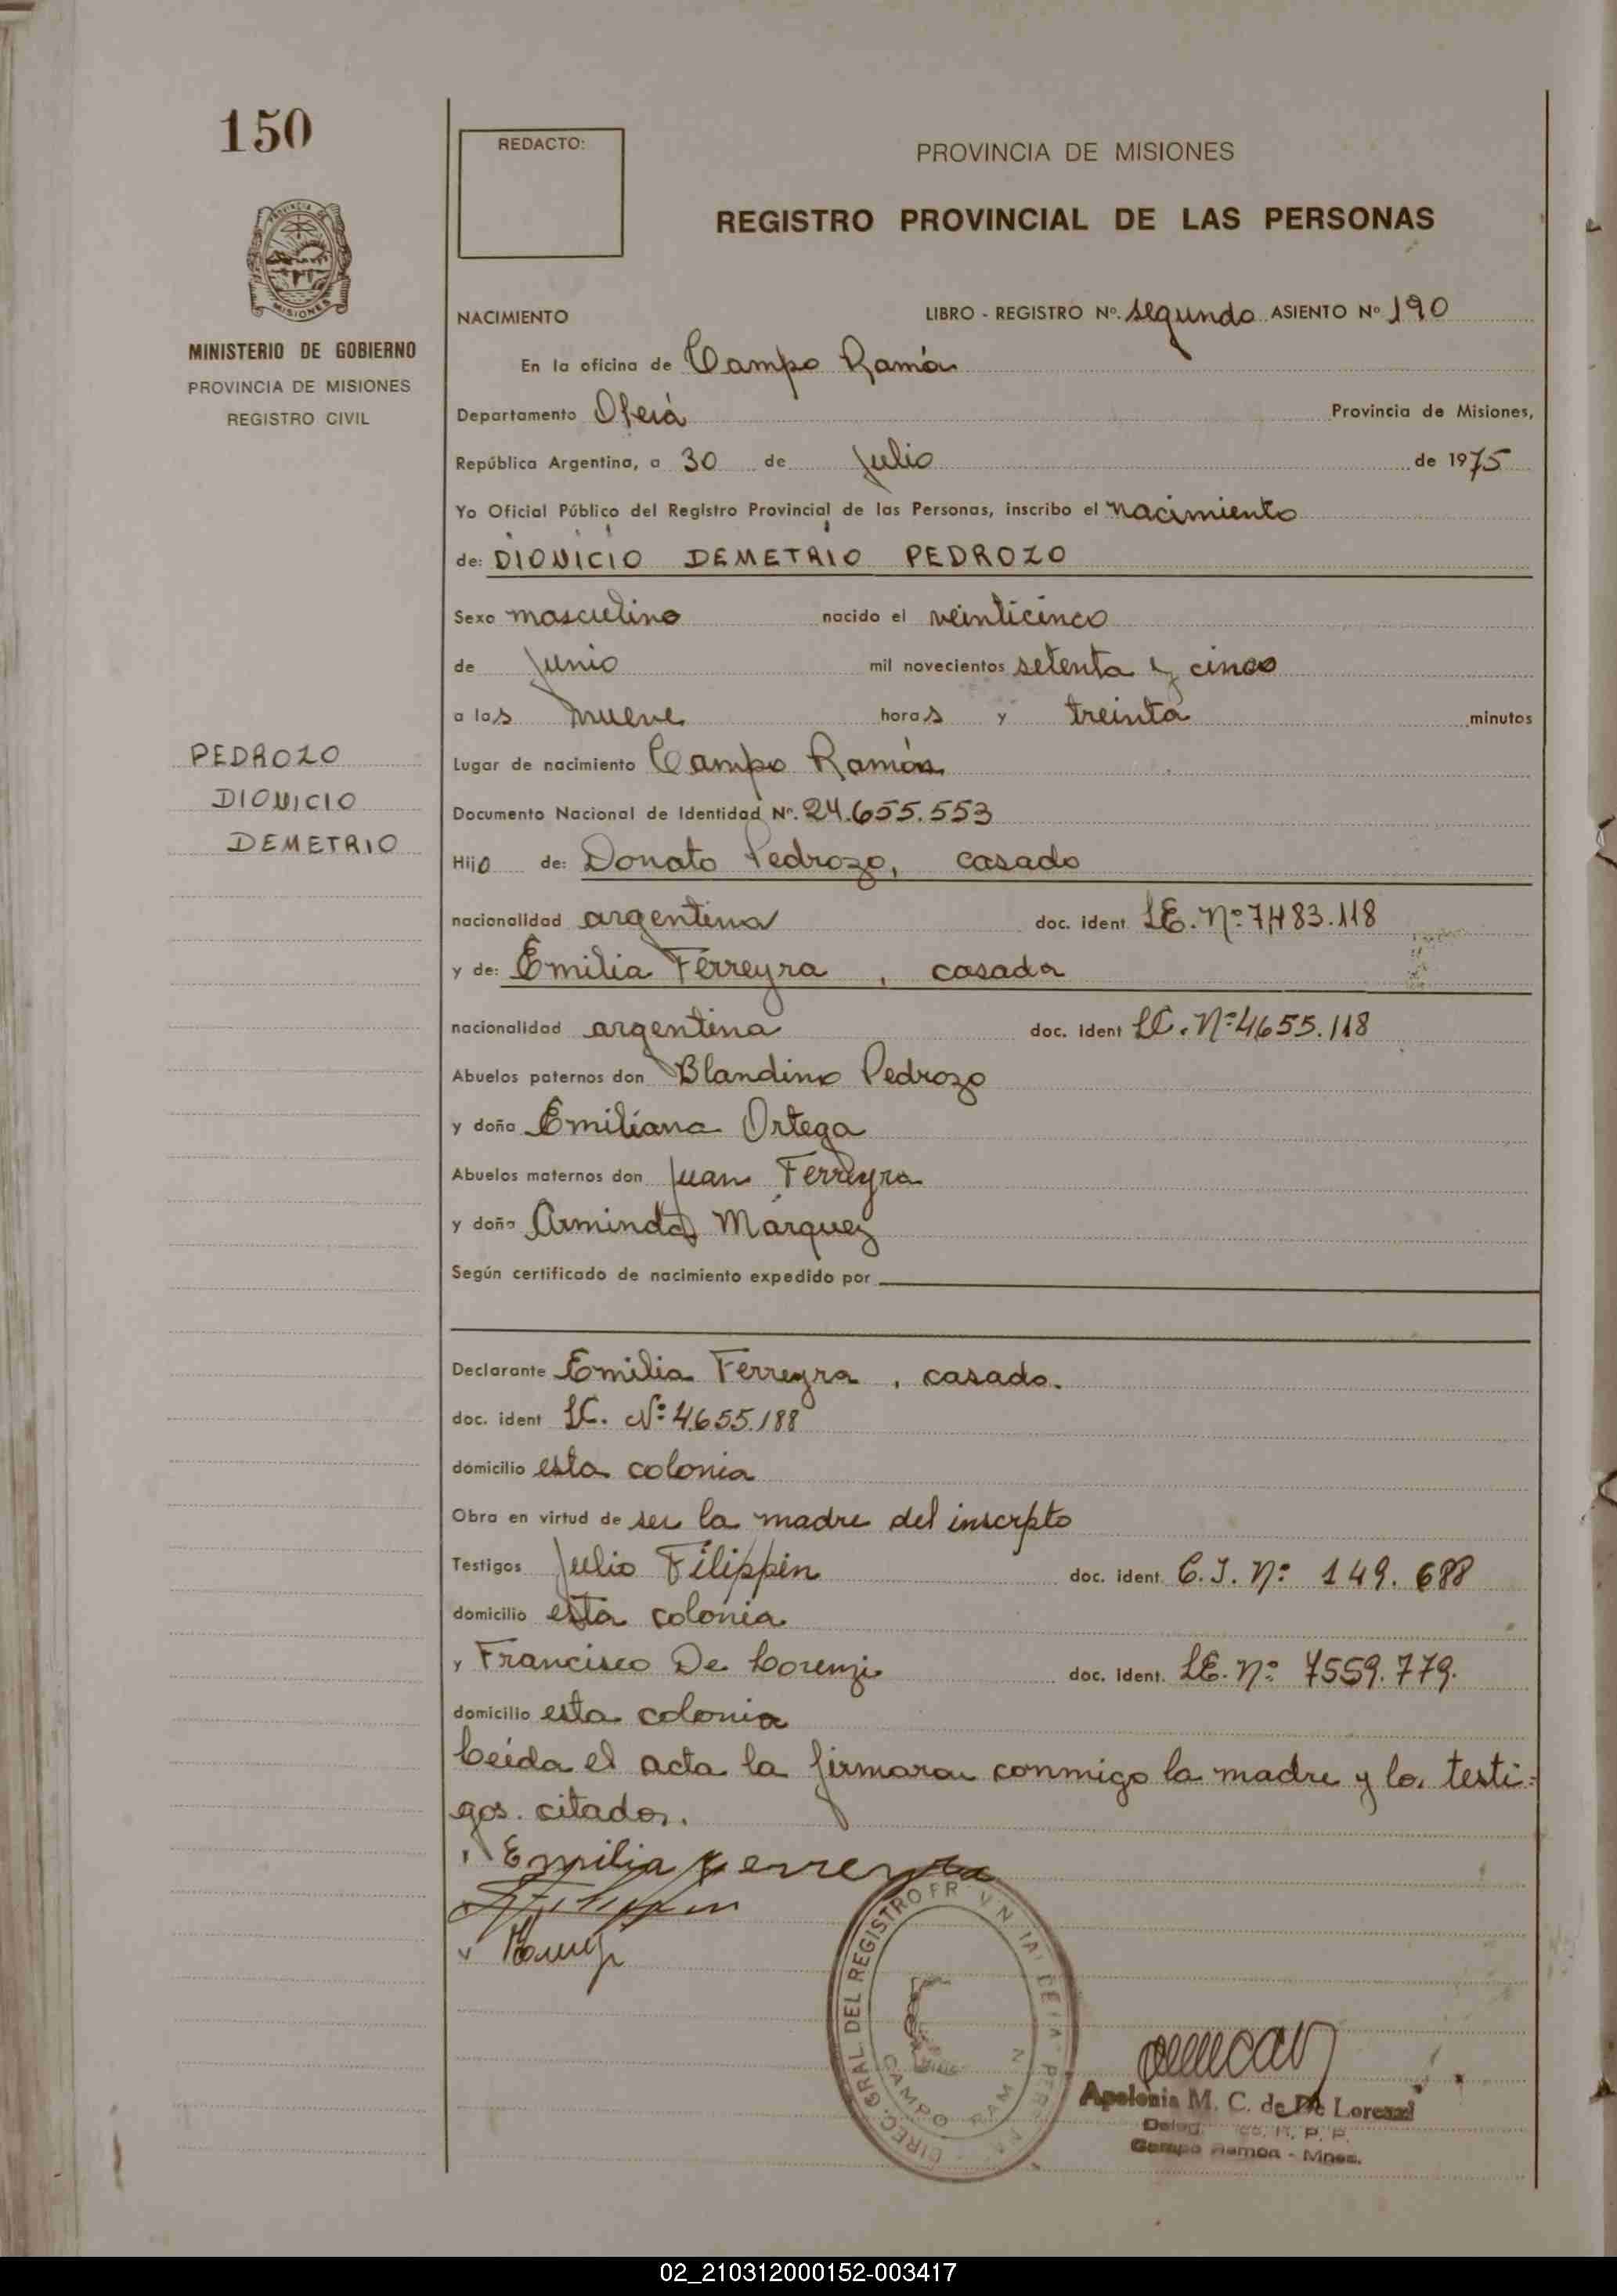 150
REDACTO:
PROVINCIA DE MISIONES
REGISTRO PROVINCIAL DE LAS PERSONAS
MINISTERIO DE GOBIERNO
PROVINCIA DE MISIONES
REGISTRO CIVIL
NACIMIENTO LIBRO - REGISTRO Nº. segundo ASIENTO Nº 190
En la oficina de Campo Ramón
Departamento Oberá Provincia de Misiones,
República Argentina, a 30 de Julio de 1975
Yo Oficial Público del Registro Provincial de las Personas, inscribo el nacimiento
de: DIONICIO DEMETRIO PEDROZO
Sexo masculino nacido el veinticinco
de Junio mil novecientos setenta y cinco
a las nueve horas y treinta minutos
PEDROZO
DIONICIO
DEMETRIO
Lugar de nacimiento Campo Ramón
Documento Nacional de Identidad Nº. 24.655.553
Hijo de: Donato Pedrozo, casado
nacionalidad argentina doc. ident LE. Nº 7.483.118
y de: Emilia Ferreyra, casada
nacionalidad argentina doc. ident LC. Nº 4655.118
Abuelos paternos don Blandino Pedrozo
y doña Emiliana Ortega
Abuelos maternos don Juan Ferreyra
y doña Arminda Márquez
Según certificado de nacimiento expedido por
Declarante Emilia Ferreyra, casada.
doc. ident LC. Nº 4.655.188
domicilio esta colonia
Obra en virtud de ser la madre del inscrpto
Testigos Julio Filippin doc. ident C.I. Nº 149.688
domicilio esta colonia
y Francisco De Lorenzi doc. Ident. LE. Nº 7559.779.
domicilio esta colonia
Leída el acta la firmaron conmigo la madre y los testi=
gos citados.
Emilia Ferreyra
Filippin
DIREC. GRAL DEL REGISTRO
CAMPO RAM N
Apolonia M. C. de De Lorenzi
R. P. P.
Campo Ramón - Mnes.
02_210312000152-003417